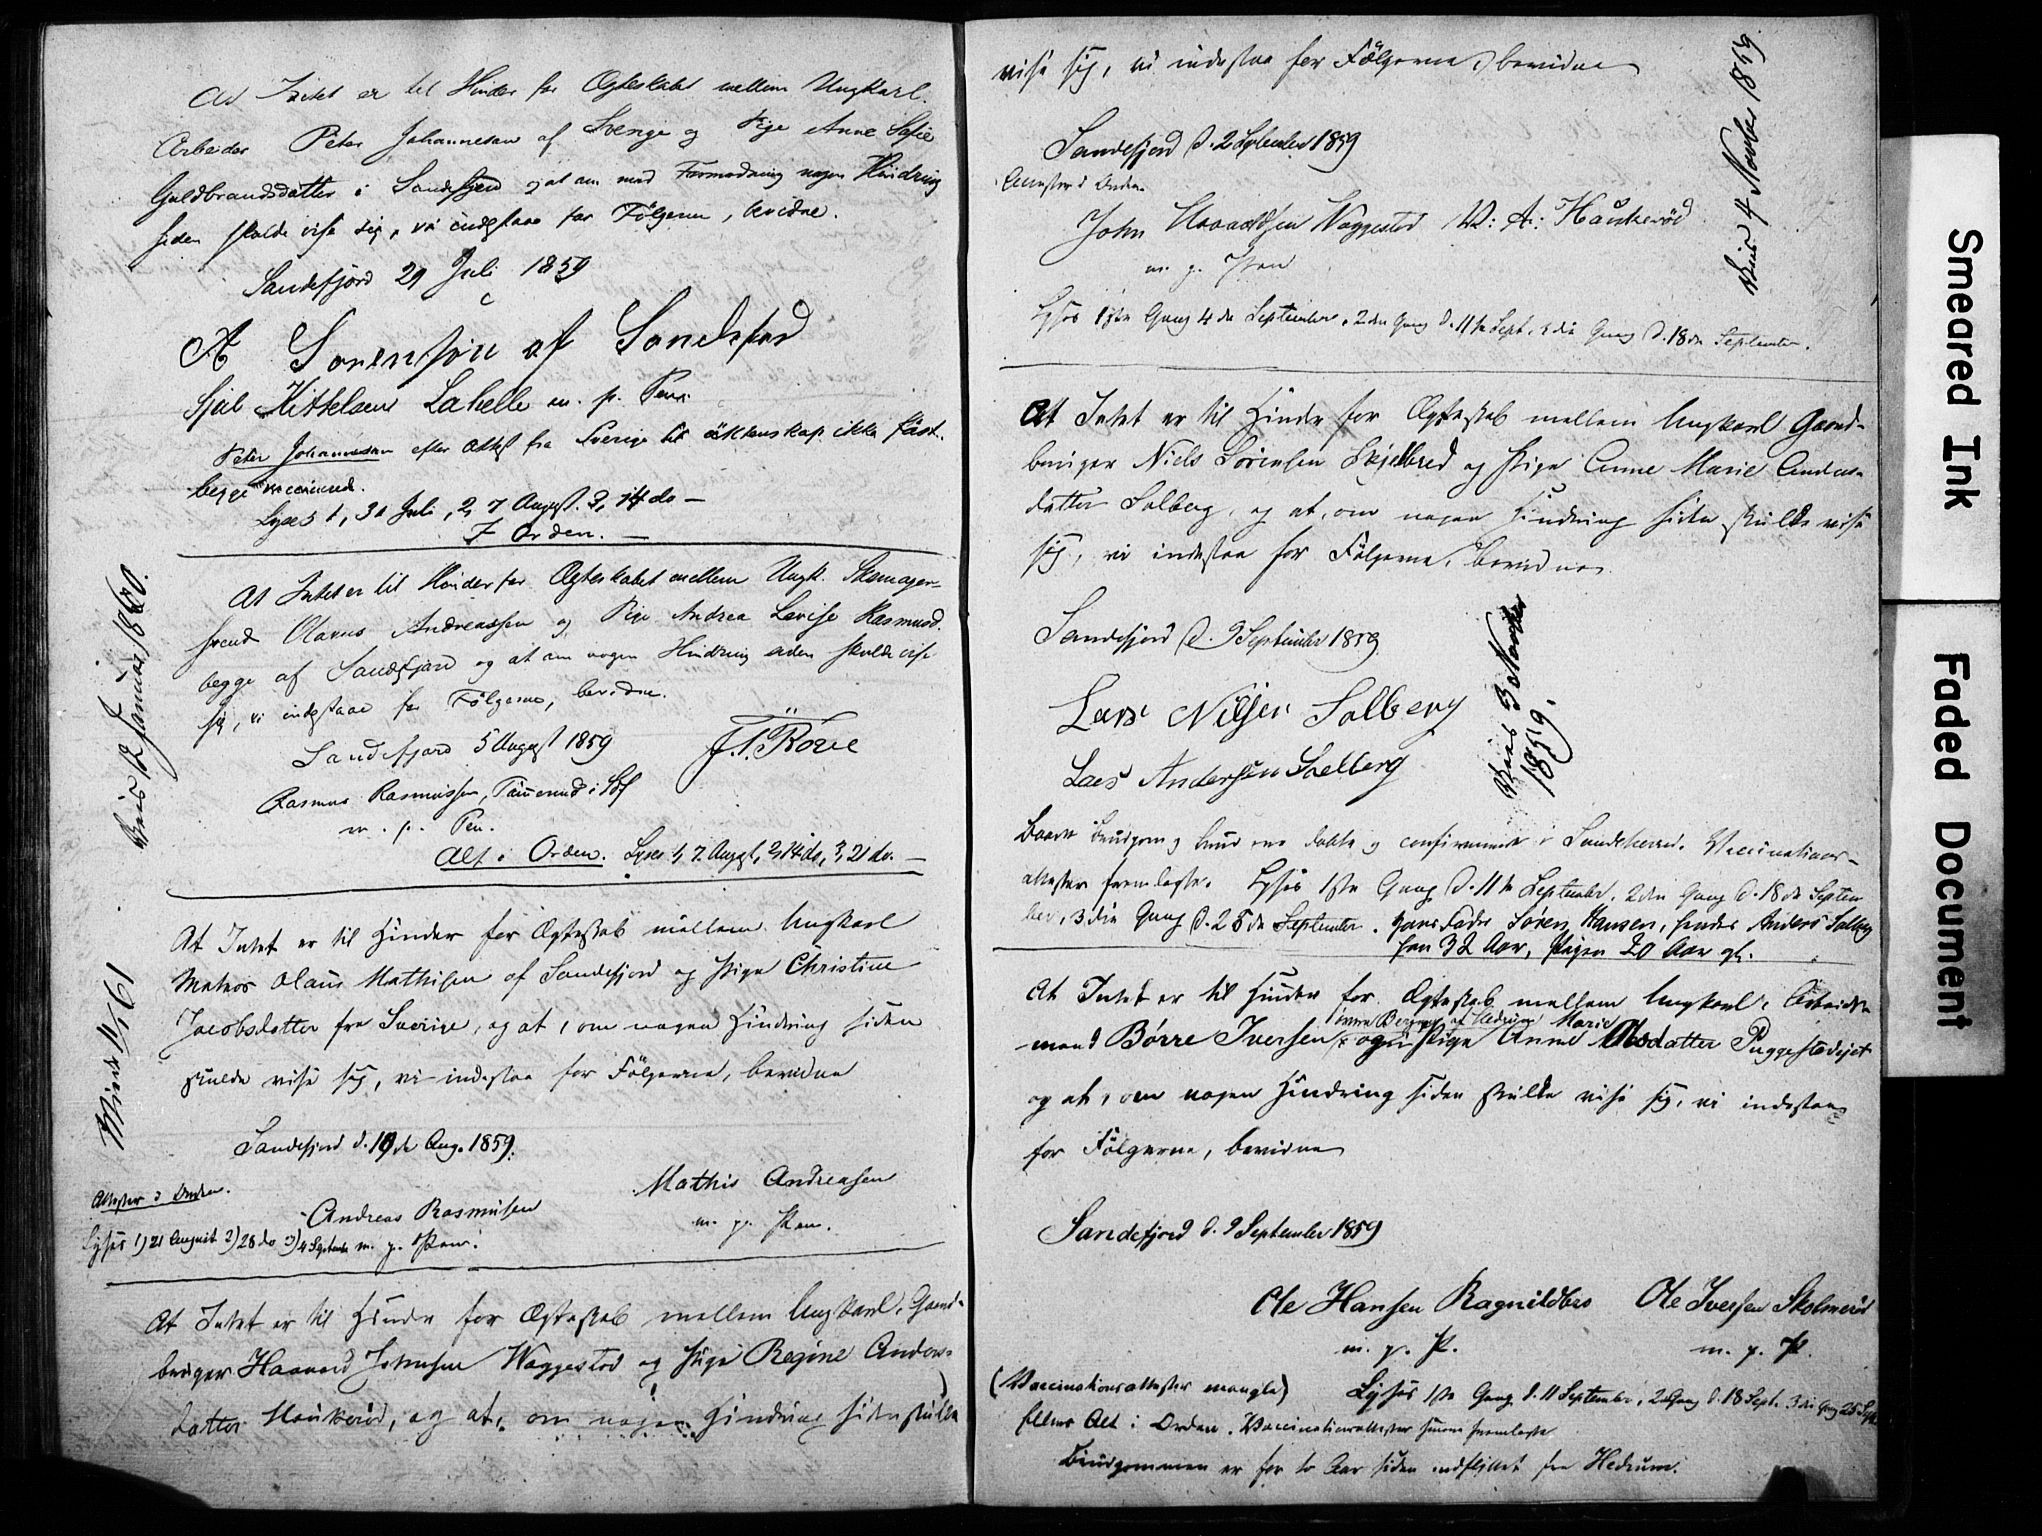 At Intet er til Hinder for Ægteskabet mellem Ungkarl.
Arbeider Peter Johannesen af Sverige og Pige Anne Sofie
Guldbrandsdatter i Sandefjord og at om mod Formodning nogen Hindring
siden skulde vise sig, vi indestaae for Følgerne, bevidne.
Sandefjord 29 Juli 1859
A Sorensøn af Sandefjord
Kittelsen Lahelle m. p. Pen.
Peter Johannesen efter Attest fra Sverige til äktenskap ikke fäst.
begge vaccinered.
Lyses 1, 31 Juli, 2, 7 August. 3, 14 do —
I Orden. —
At Intet er til Hinder for Ægteskabet mellem Ungk. Skomager-
svend Olavus Andreassen og Pige Andrea Lovise Rasmusd.
begge af Sandefjord og at om nogen Hindring siden skulde vise
sig, vi indestaae for Følgerne, bevidne.
Sandefjord 5 August 1859
Rasmus Rasmussen, Tømmermd i Sdf
m. p. Pen.
Alt i Orden. Lyses 1, 7. Augst, 2, 14 do, 3, 21 do. —
Viet 12 Januar 1860.
At Intet er til Hinder for Ægteskab mellem Ungkarl
Matros Olaus Mathisen af Sandefjord og Pige Christine
Jacobsdatter fra Sverige, og at, om nogen Hindring siden
skulde vise sig, vi indestaa for Følgerne, bevidne
Sandefjord d. 19de Aug. 1859.
Mathis Andreasen
m. p. Pen.
Attester i Orden.
Andreas Rasmusen
Lyses 1) 21 August 2) 28 do 3) 4 Septembr m. p. Pen.
At Intet er til Hinder for Ægteskab mellem Ungkarl, Gaard-
bruger Haavard Johnsen Waggestad og Pige Regine Anders-
datter Haukerød, og at, om nogen Hindring siden skulde
vise sig, vi indestaa for Følgerne, bevidne
Sandefjord d. 2 September 1859
Attester i Orden
John Haavardsen Waggestad A: Haukerød
m. p. Pen
Viet 4 Novber 1859
Lyses 1ste Gang 4de September, 2den Gang d. 11te Sept. 3die Gang d. 18de September.
At Intet er til Hinder for Ægteskab mellem Ungkarl Gaard-
bruger Niels Sørensen Skjelbred og Pige Anne Marie Anders-
datter Solberg, og at, om nogen Hindring siden skulde vise
sig, vi indestaa for Følgerne, bevidne
Sandefjord d. 9 September 1859.
Lars Nilsen Solberg
Lars Andersen Soelberg
3 Novber
1859.
Baade Brudgom og Brud ere døbte og confirmerede i Sandeherred. Vaccinations-
attester fremlagte. Lyses 1ste Gang d. 11te September, 2den Gang d. 18de Septem
ber, 3die Gang d. 25de September. Hans Fader Søren Hansen, hendes Anders Solberg
han 32 Aar, Pigen 20 Aar gl.
At Intet er til Hinder for Ægteskab mellem Ungkarl, Arbeids-
mand Børre Iversen af Hedrum og Pige Anne Marie Olsdatter Puggestadejet
og at, om nogen Hindring siden skulde vise sig, vi indestaa
for Følgerne, bevidne
Sandefjord d. 9 September 1859
Ole Hansen Ragnildbro Ole Iversen Skolmerød
m. p. P. m. p. P.
(Vaccinationsattester mangle) Lyses 1ste Gang d. 11 September, 2 Gang d. 18 Sept. 3die Gang 25 Sept
Alt i Orden. Vaccinationsattester senere fremlagte
Brudgommen er for to Aar siden indflyttet fra Hedrum.
Smeared Ink
Faded Document